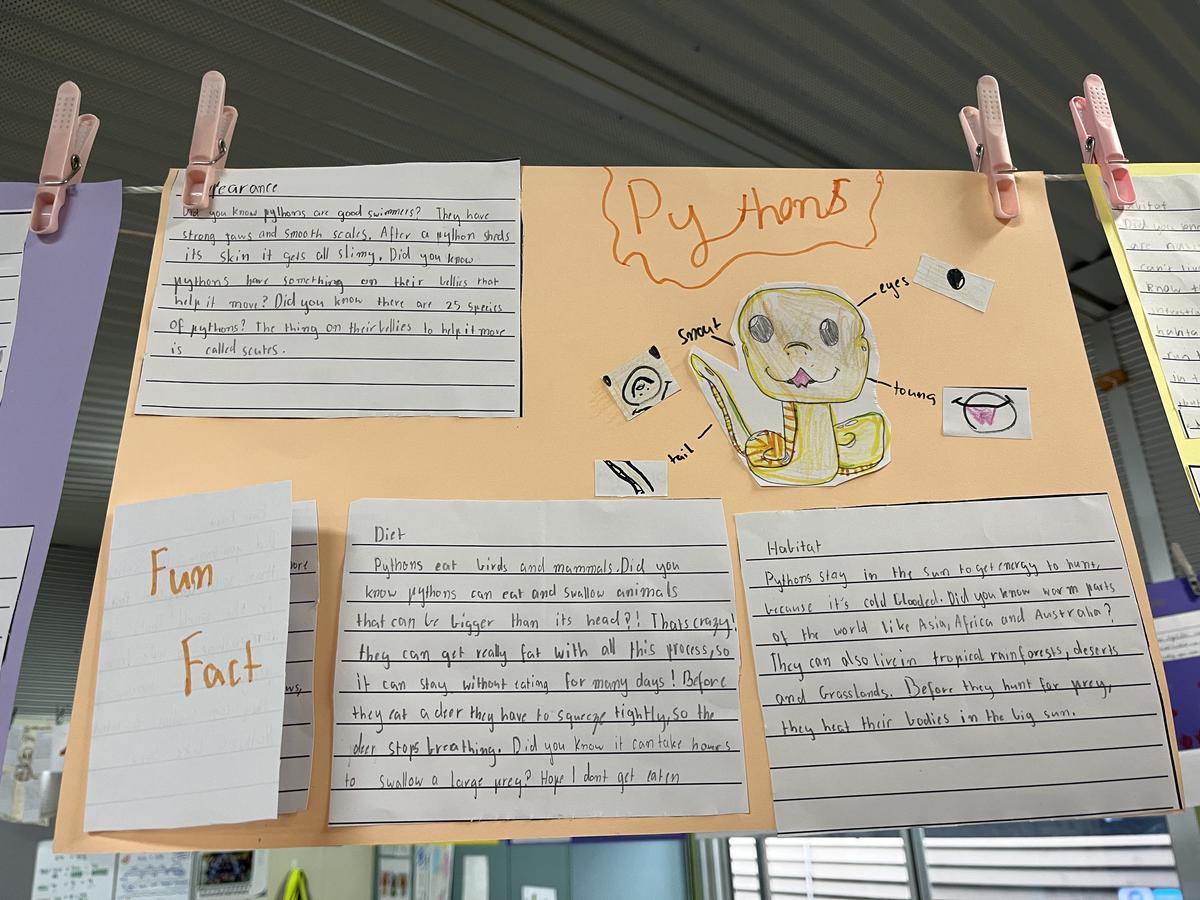 Pythons
pearance
Did you know pythons are good swimmers? They have
strong jaws and smooth scales. After a python sheds
its skin it gets all slimy. Did you know
pythons have something on their bellies that
help it move? Did you know there are 25 species
of pythons? The thing on their bellies to help it move
is called scutes.
eyes
Snout
toung
tail
Fun
Fact
Diet
Pythons eat birds and mammals. Did you
know pythons can eat and swallow animals
that can be bigger than its head?! Thats crazy!
they can get really fat with all this process, so
it can stay without eating for many days! Before
they eat a deer they have to squeeze tightly, so the
deer stops breathing. Did you know it can take hours
to swallow a large prey? Hope I dont get eaten
Habitat
Pythons stay in the sun to get energy to hunt,
because it's cold blooded. Did you know warm parts
of the world like Asia, Africa and Australia?
They can also live in tropical rainforests, deserts
and Grasslands. Before they hunt for prey,
they heat their bodies in the big sun.